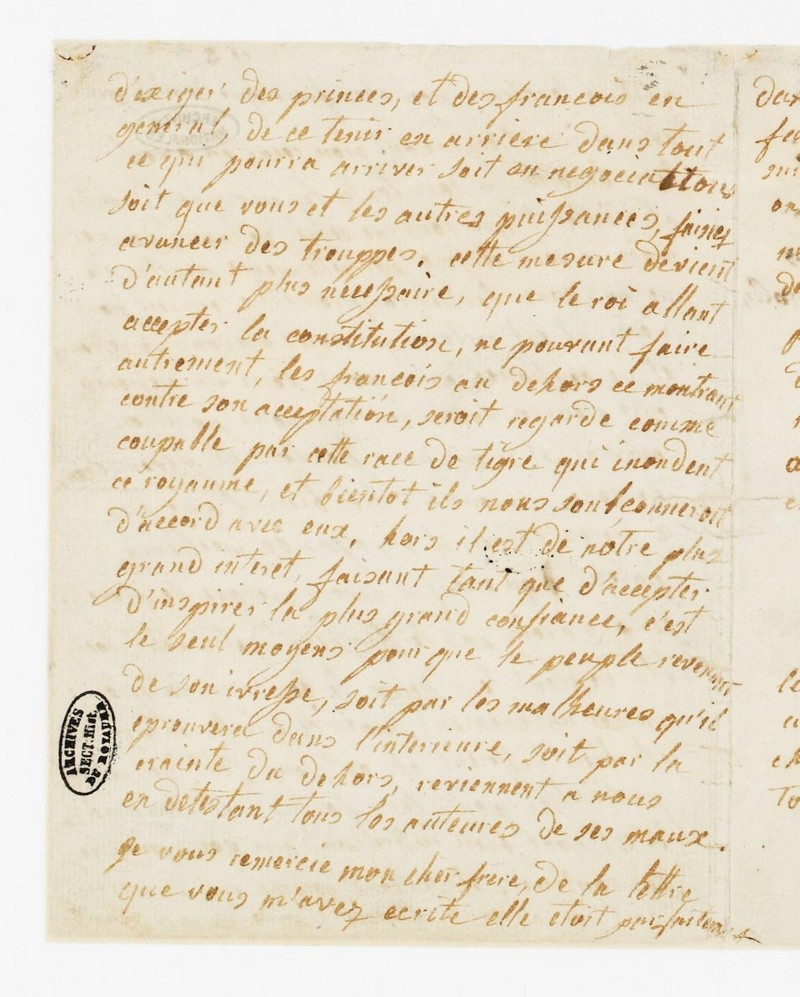 d'exiger des princes, et des francois en
general, de ce tenir en arriere dans tout
ce qui pourra arriver soit en negociations
soit que vous et les autres puissances, faisiez
avancer des trouppes. cette mesure devient
d'autant plus necessaire, que le roi allant
accepter la constitution, ne pouvant faire
autrement, les francois au dehors ce montrant
contre son acceptation, seroit regarde comme
coupable par cette race de tigre qui inondent
ce royaume, et bientot ils nous soubconneroit
d'accord avec eux, hors il est de notre plus
grand interet, faisant tant que d'accepter
d'inspirer la plus grand confiance, c'est
le seul moyens pour que le peuple revenant
de son ivresse, soit par les malheures qu'il
eprouvera dans l'interrieure, soit par la
crainte du dehors, reviennent a nous
en detestant tous les auteures de ses maux.
je vous remercie mon cher frere, de la lettre
que vous m'avez ecrite elle etoit parfaitement
ARCHIVES
SECT. Hist.
DU ROYAUME